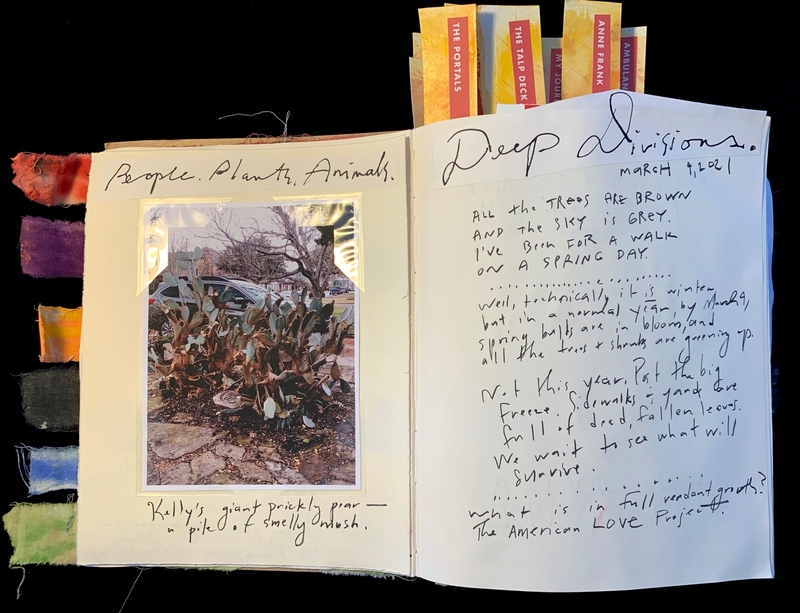 THE PORTALS
THE TALP DECK
MY JOUR
ANNE FRANK
AMBULAN
People. Plants. Animals.
Kelly's giant prickly pear —
a pile of smelly mush.
Deep Divisions.
MARCH 9, 2021
ALL the TREES ARE BROWN
AND the SKY is GREY.
I'VE BEEN FOR A WALK
ON A SPRING DAY.
Well, technically it is winter,
but in a normal year, by March 9,
spring bulbs are in bloom, and
all the trees + shrubs are greening up.
Not this year. Post the big
Freeze. Sidewalks + yards are
full of dead, fallen leaves.
We wait to see what will
survive.
What is in full verdant growth?
The American LOVE Project.